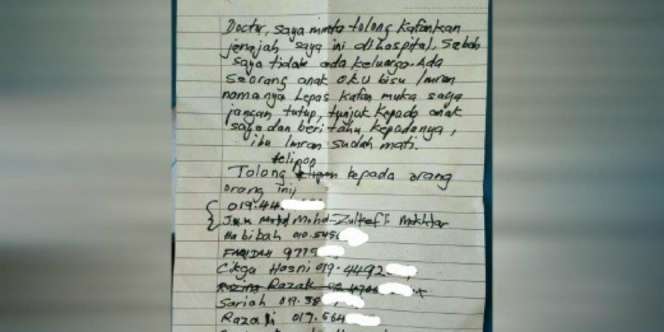 Doctor, saya minta tolong kafankan
jenajah saya ini di hospital. Sebab
saya tidak ada keluarga. Ada
seorang anak OKU bisu Imran
namanya Lepas kafan muka saya
jangan tutup, tunjuk kepada anak
saya dan beri tahu kepadanya,
ibu Imran sudah mati.
telipon
Tolong kepada orang
orang ini;
019.44
Mohd Zulkefli Mokhtar
Habibah 010.545
FARIDAH 9775
Cikgu Hasni 019.4492
Razak
Sariah 019.58
Razali 017.564